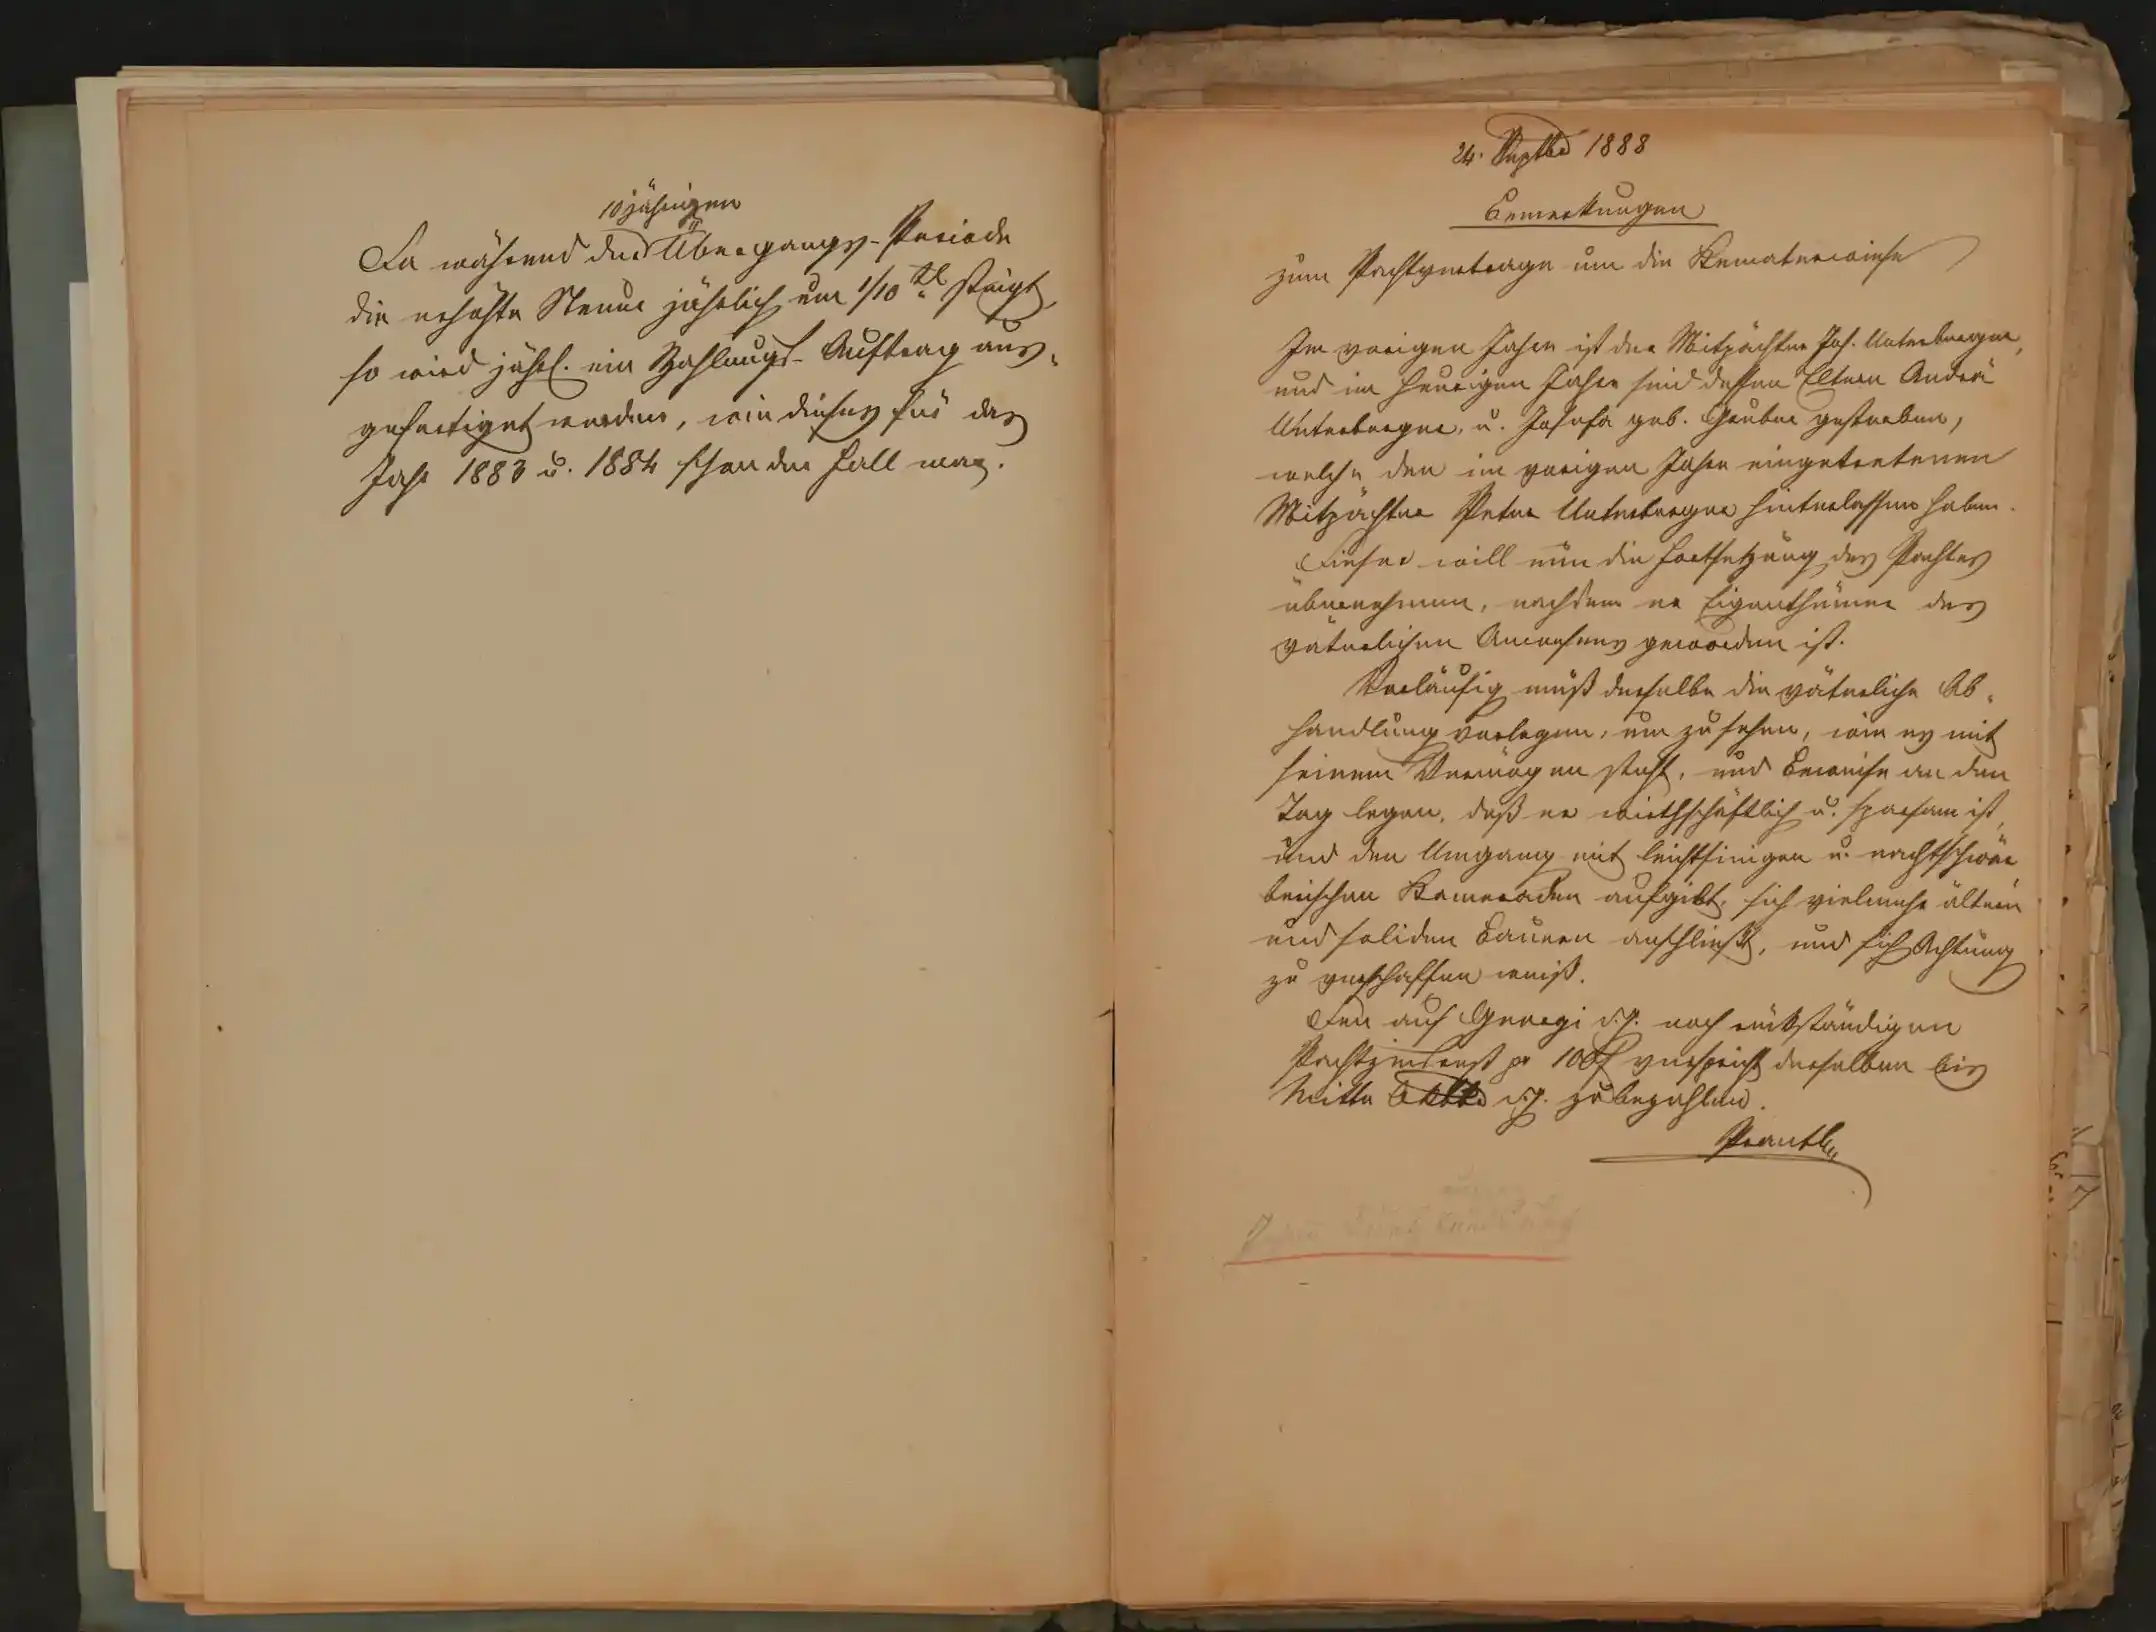 10jährigen
Da während der Übergangs-Periode
die erhöhte Steuer jährlich um 1/10tl steigt
so wird jährl. ein Zahlungs-Auftrag aus-
gefertiget werden, wie dieses für das
Jahr 1883 u. 1884 schon der Fall war.
24. Septbr 1888
Bemerkungen
zum Pachtvertrage um die Kematerwiese
Im vorigen Jahre ist der Mitpächter Joh. Unterberger,
und im heurigen Jahre sind dessen Eltern Andrä
Unterberger, u. Josefa geb. Gruber gestorben,
welche den im vorigen Jahre eingetretenen
Mitpächter Peter Unterberger hinterlassen haben.
Dieser will nun die Fortsetzung des Pachtes
übernehmen, nachdem er Eigenthümer des
väterlichen Anwesens geworden ist.
Vorläufig muß derselbe die väterliche Ab-
handlung vorlegen, um zu sehen, wie es mit
seinem Vermögen steht, und Beweise an den
Tag legen, daß er wirthschäftlich u. sparsam ist,
und den Umgang mit leichtsinigen u. nachtschwär
merischen Kameraden aufgibt, sich vielmehr ältern
und soliden Bauern anschließt, und sich Achtung
zu verschaffen weiß.
Den auf Georgi d. J. noch rückständigen
Pachtzinsrest pr 100 f verspricht derselbe bis
Mitte Oktbr d. J. zu bezahlen.